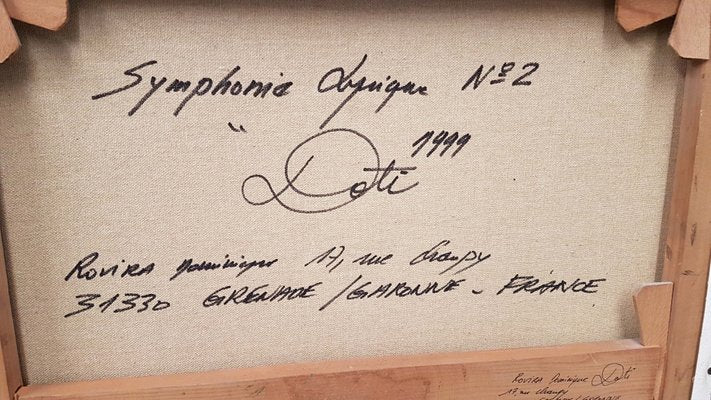 Symphonie Lyrique Nº2
" Doti 1999
ROVIRA Dominique 17, rue Chaupy
31330 GRENADE / GARONNE - FRANCE
ROVIRA Dominique Doti
17, rue Chaupy